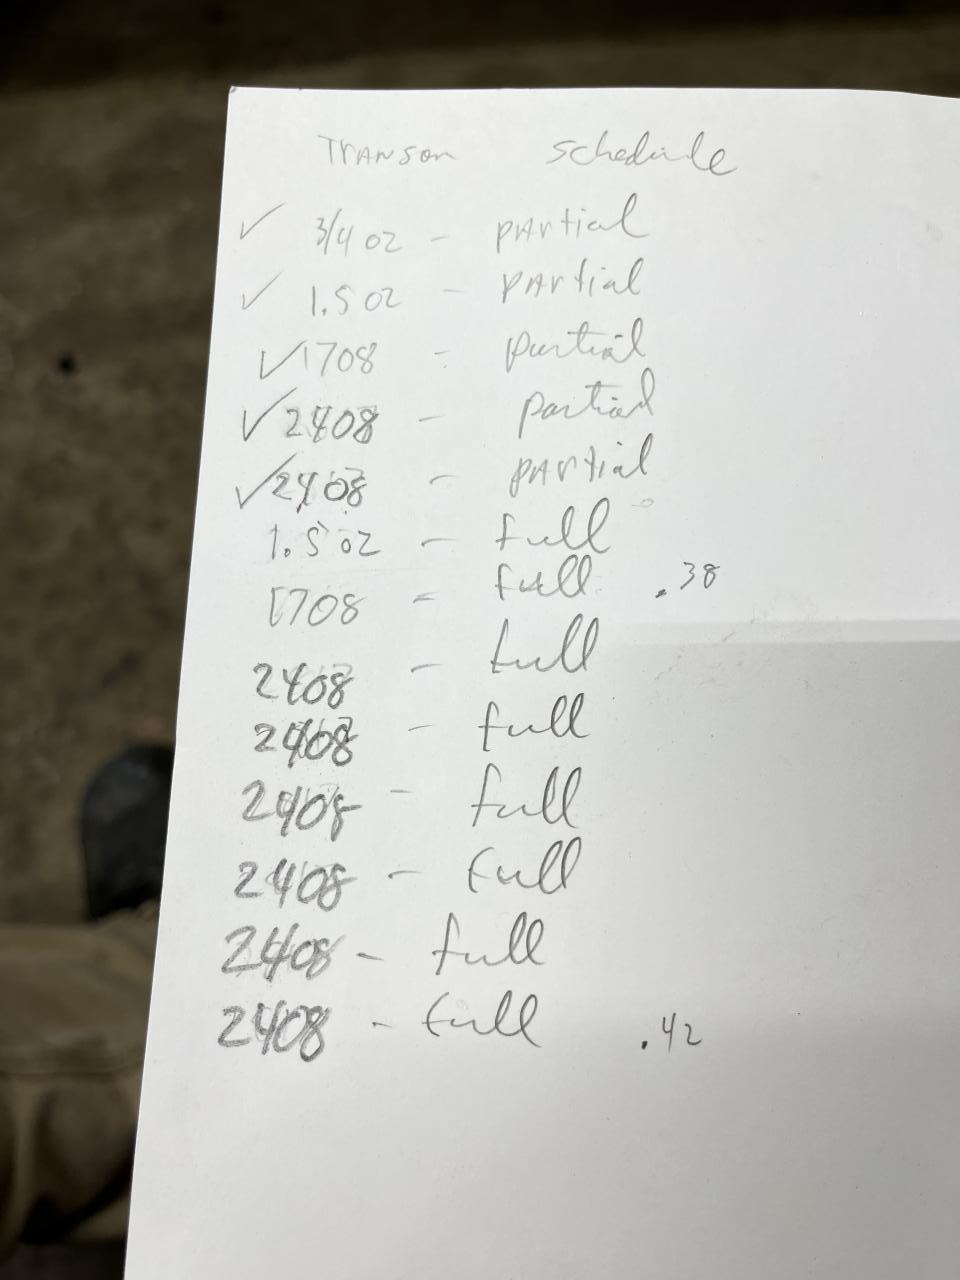 Transom Schedule
✓ 3/4 oz - partial
✓ 1.5 oz - partial
✓ 1708 - partial
✓ 2408 - partial
✓ 2408 - partial
1.5 oz - full
1708 - full .38
2408 - full
2408 - full
2408 - full
2408 - full
2408 - full
2408 - full .42